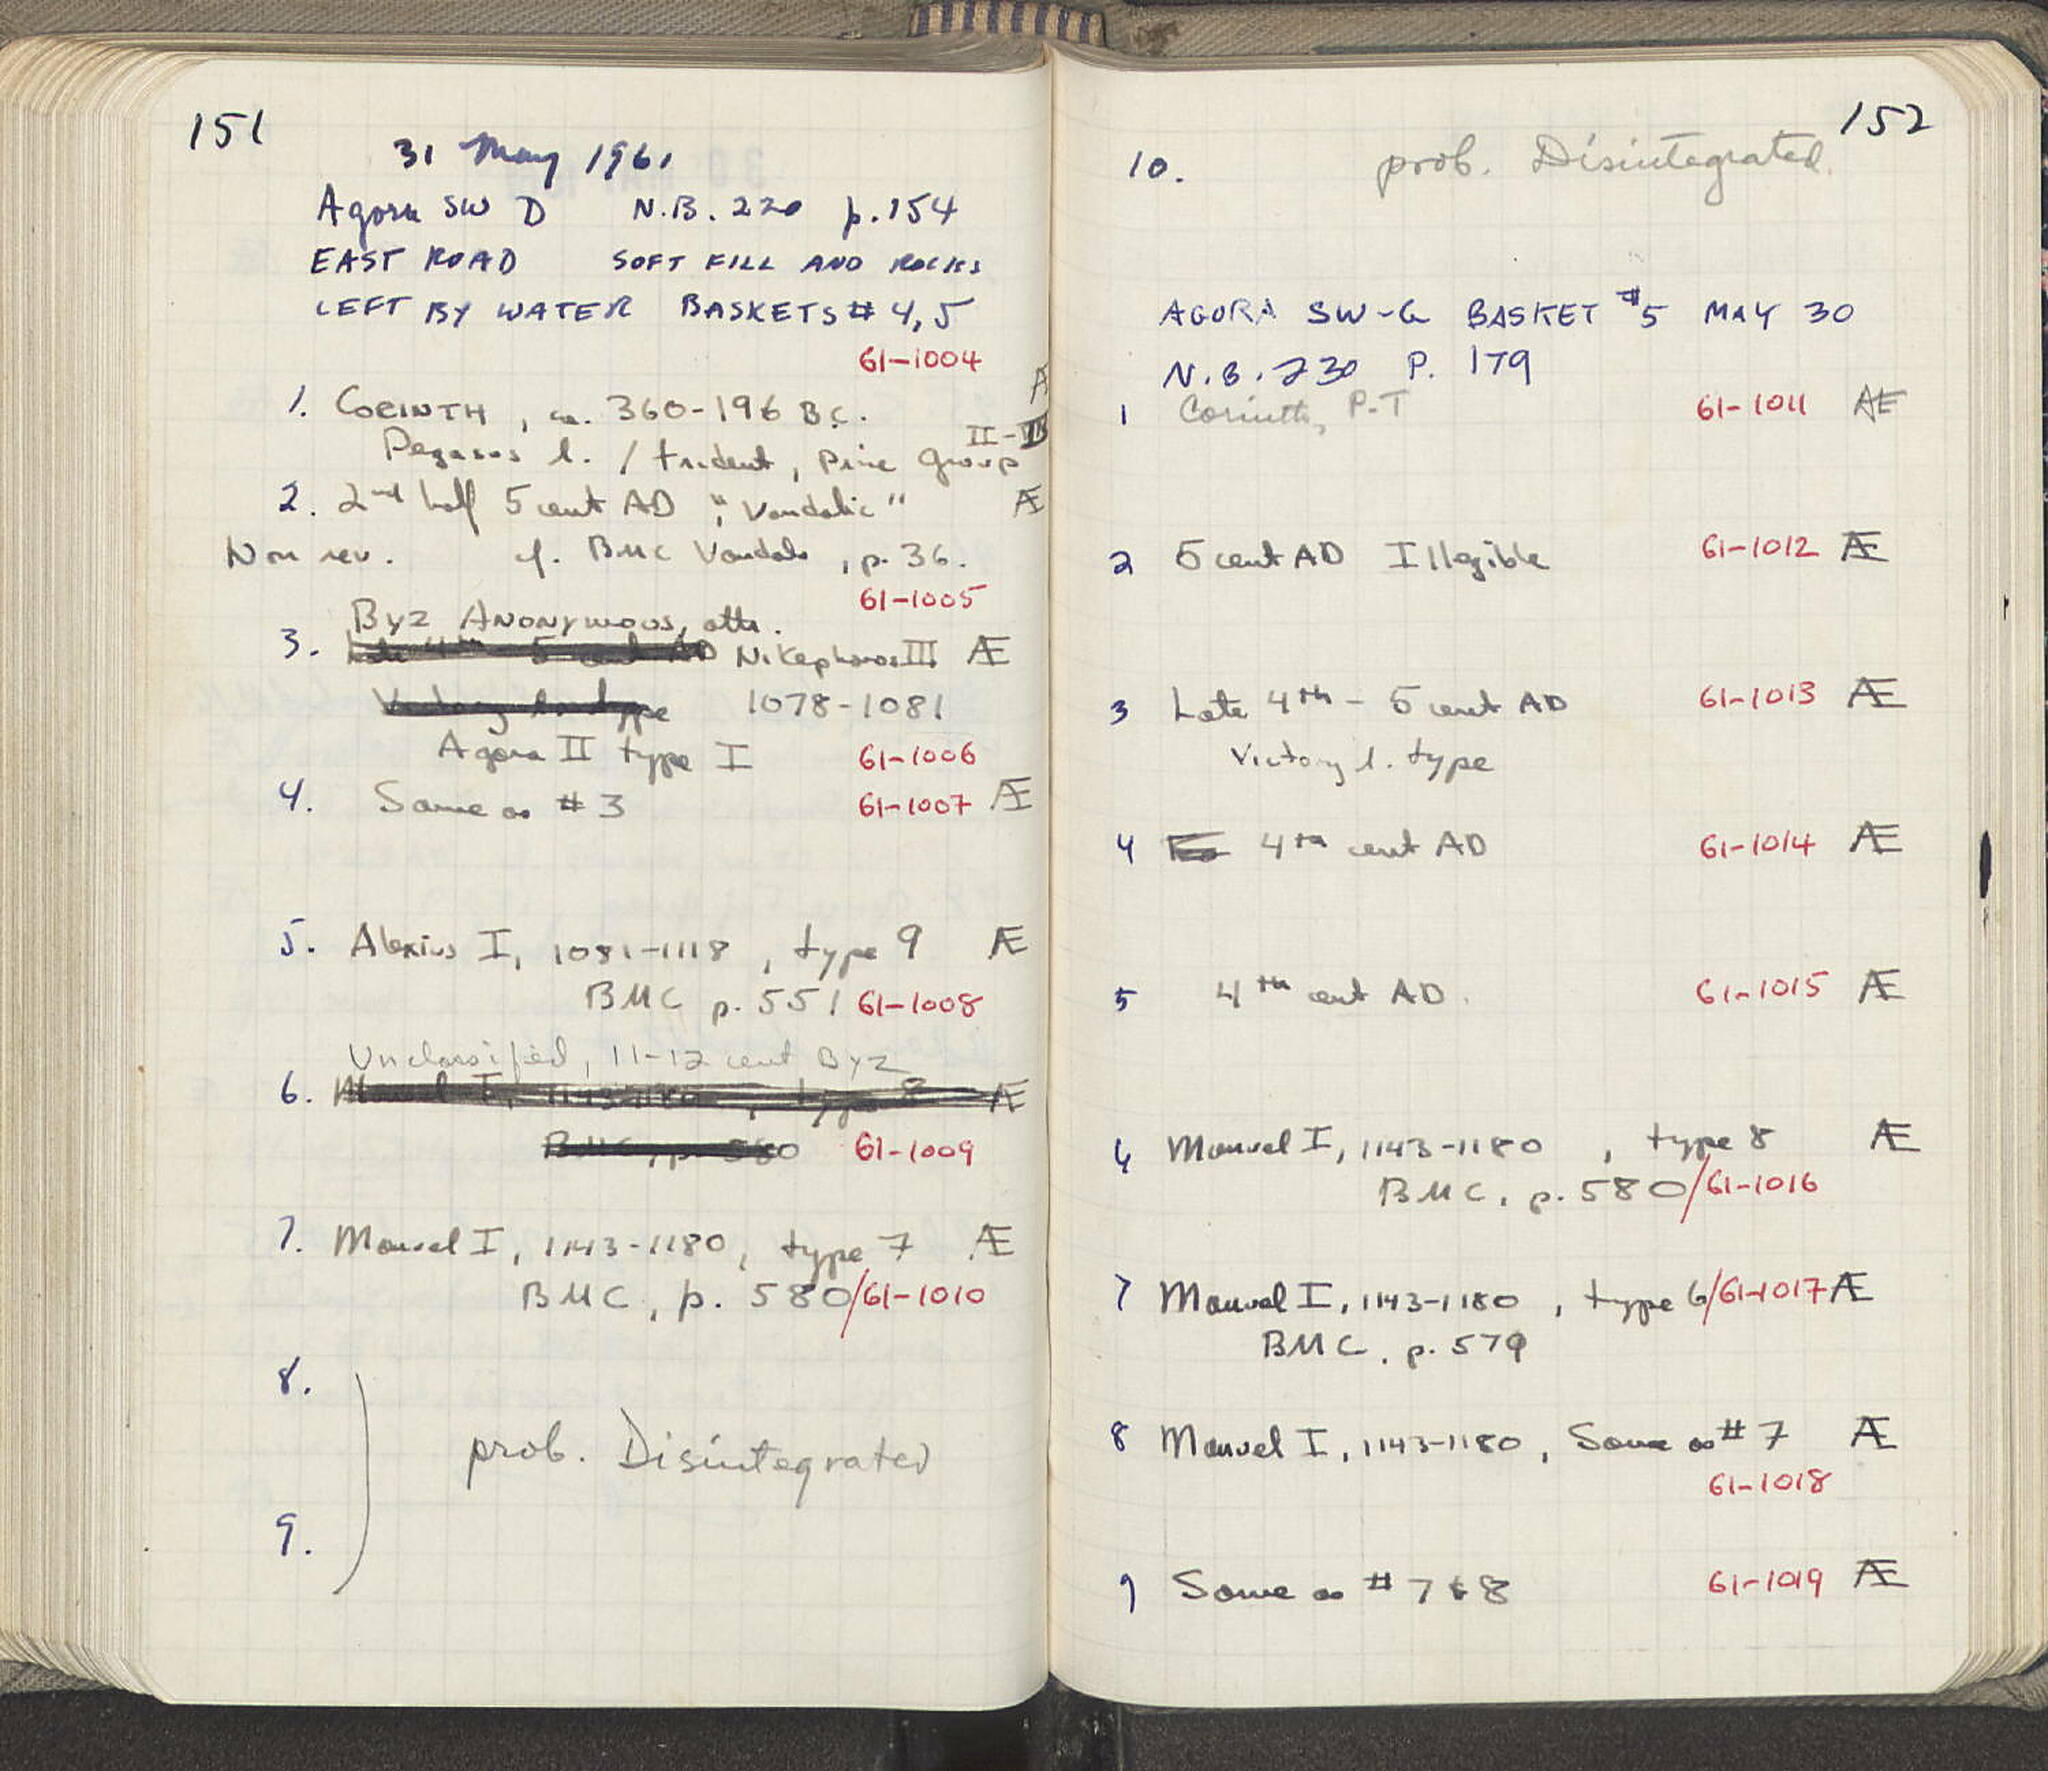 151
31 May 1961
Agora SW D N.B. 220 p.154
EAST ROAD SOFT FILL AND ROCKS
LEFT BY WATER BASKETS # 4,5
61-1004
1. CORINTH, ca. 360-196 B.C. Æ
II-
Pegasus l. / trident, Price Group
2. 2nd half 5 cent AD "Vandalic" Æ
Non rev. cf. BMC Vandals, p. 36.
61-1005
Byz ANONYMOUS, attr.
3. Late 4th - 5 cent AD Nikephoros III Æ
Victory l. type 1078-1081
Agora II type I 61-1006
4. Same as # 3 61-1007 Æ
5. Alexius I, 1081-1118, type 9 Æ
BMC p. 551 61-1008
Unclassified, 11-12 cent Byz
6. Manuel I, 1143-1180, type 8 Æ
BMC, p. 580 61-1009
7. Manuel I, 1143-1180, type 7 Æ
BMC, p. 580/61-1010
8.
prob. Disintegrated
9.
152
10. prob. Disintegrated.
AGORA SW-G BASKET #5 MAY 30
N.B. 230 P. 179
1 Corinth, P-T 61-1011 Æ
2 5 cent AD Illegible 61-1012 Æ
3 Late 4th - 5 cent AD 61-1013 Æ
Victory l. type
4 4th cent AD 61-1014 Æ
5 4th cent AD. 61-1015 Æ
6 Manuel I, 1143-1180, type 8 Æ
BMC, p. 580/61-1016
7 Manuel I, 1143-1180, type 6/61-1017 Æ
BMC, p. 579
8 Manuel I, 1143-1180, Same as # 7 Æ
61-1018
9 Same as # 7 & 8 61-1019 Æ